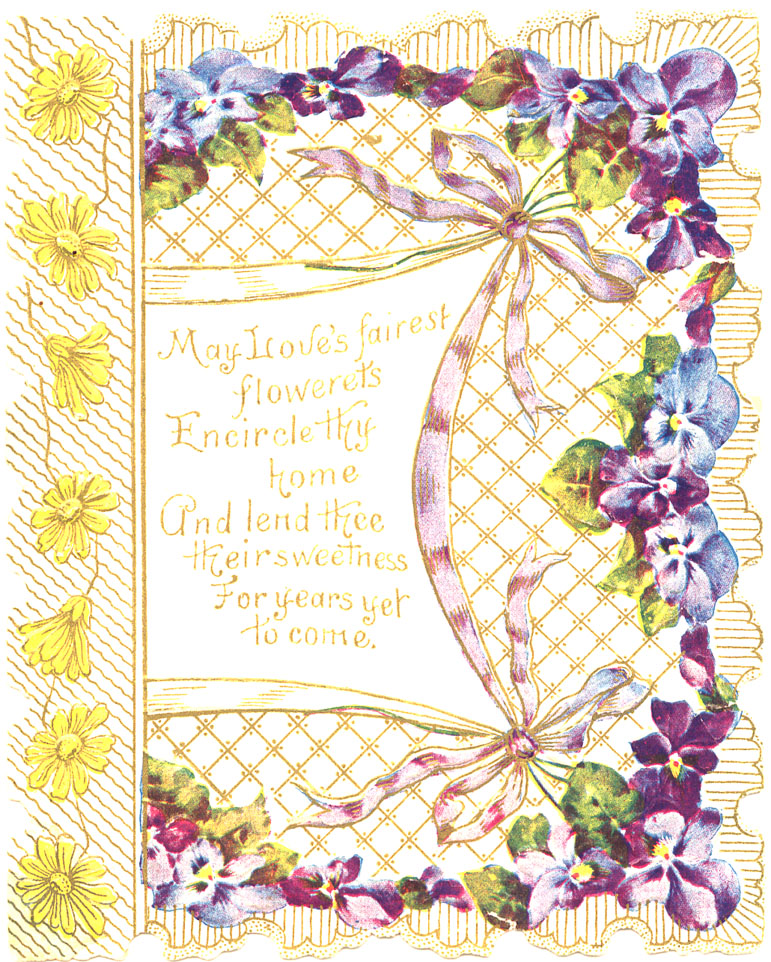 May Love's fairest
flowerets
Encircle thy
home
And lend thee
their sweetness
For years yet
to come.